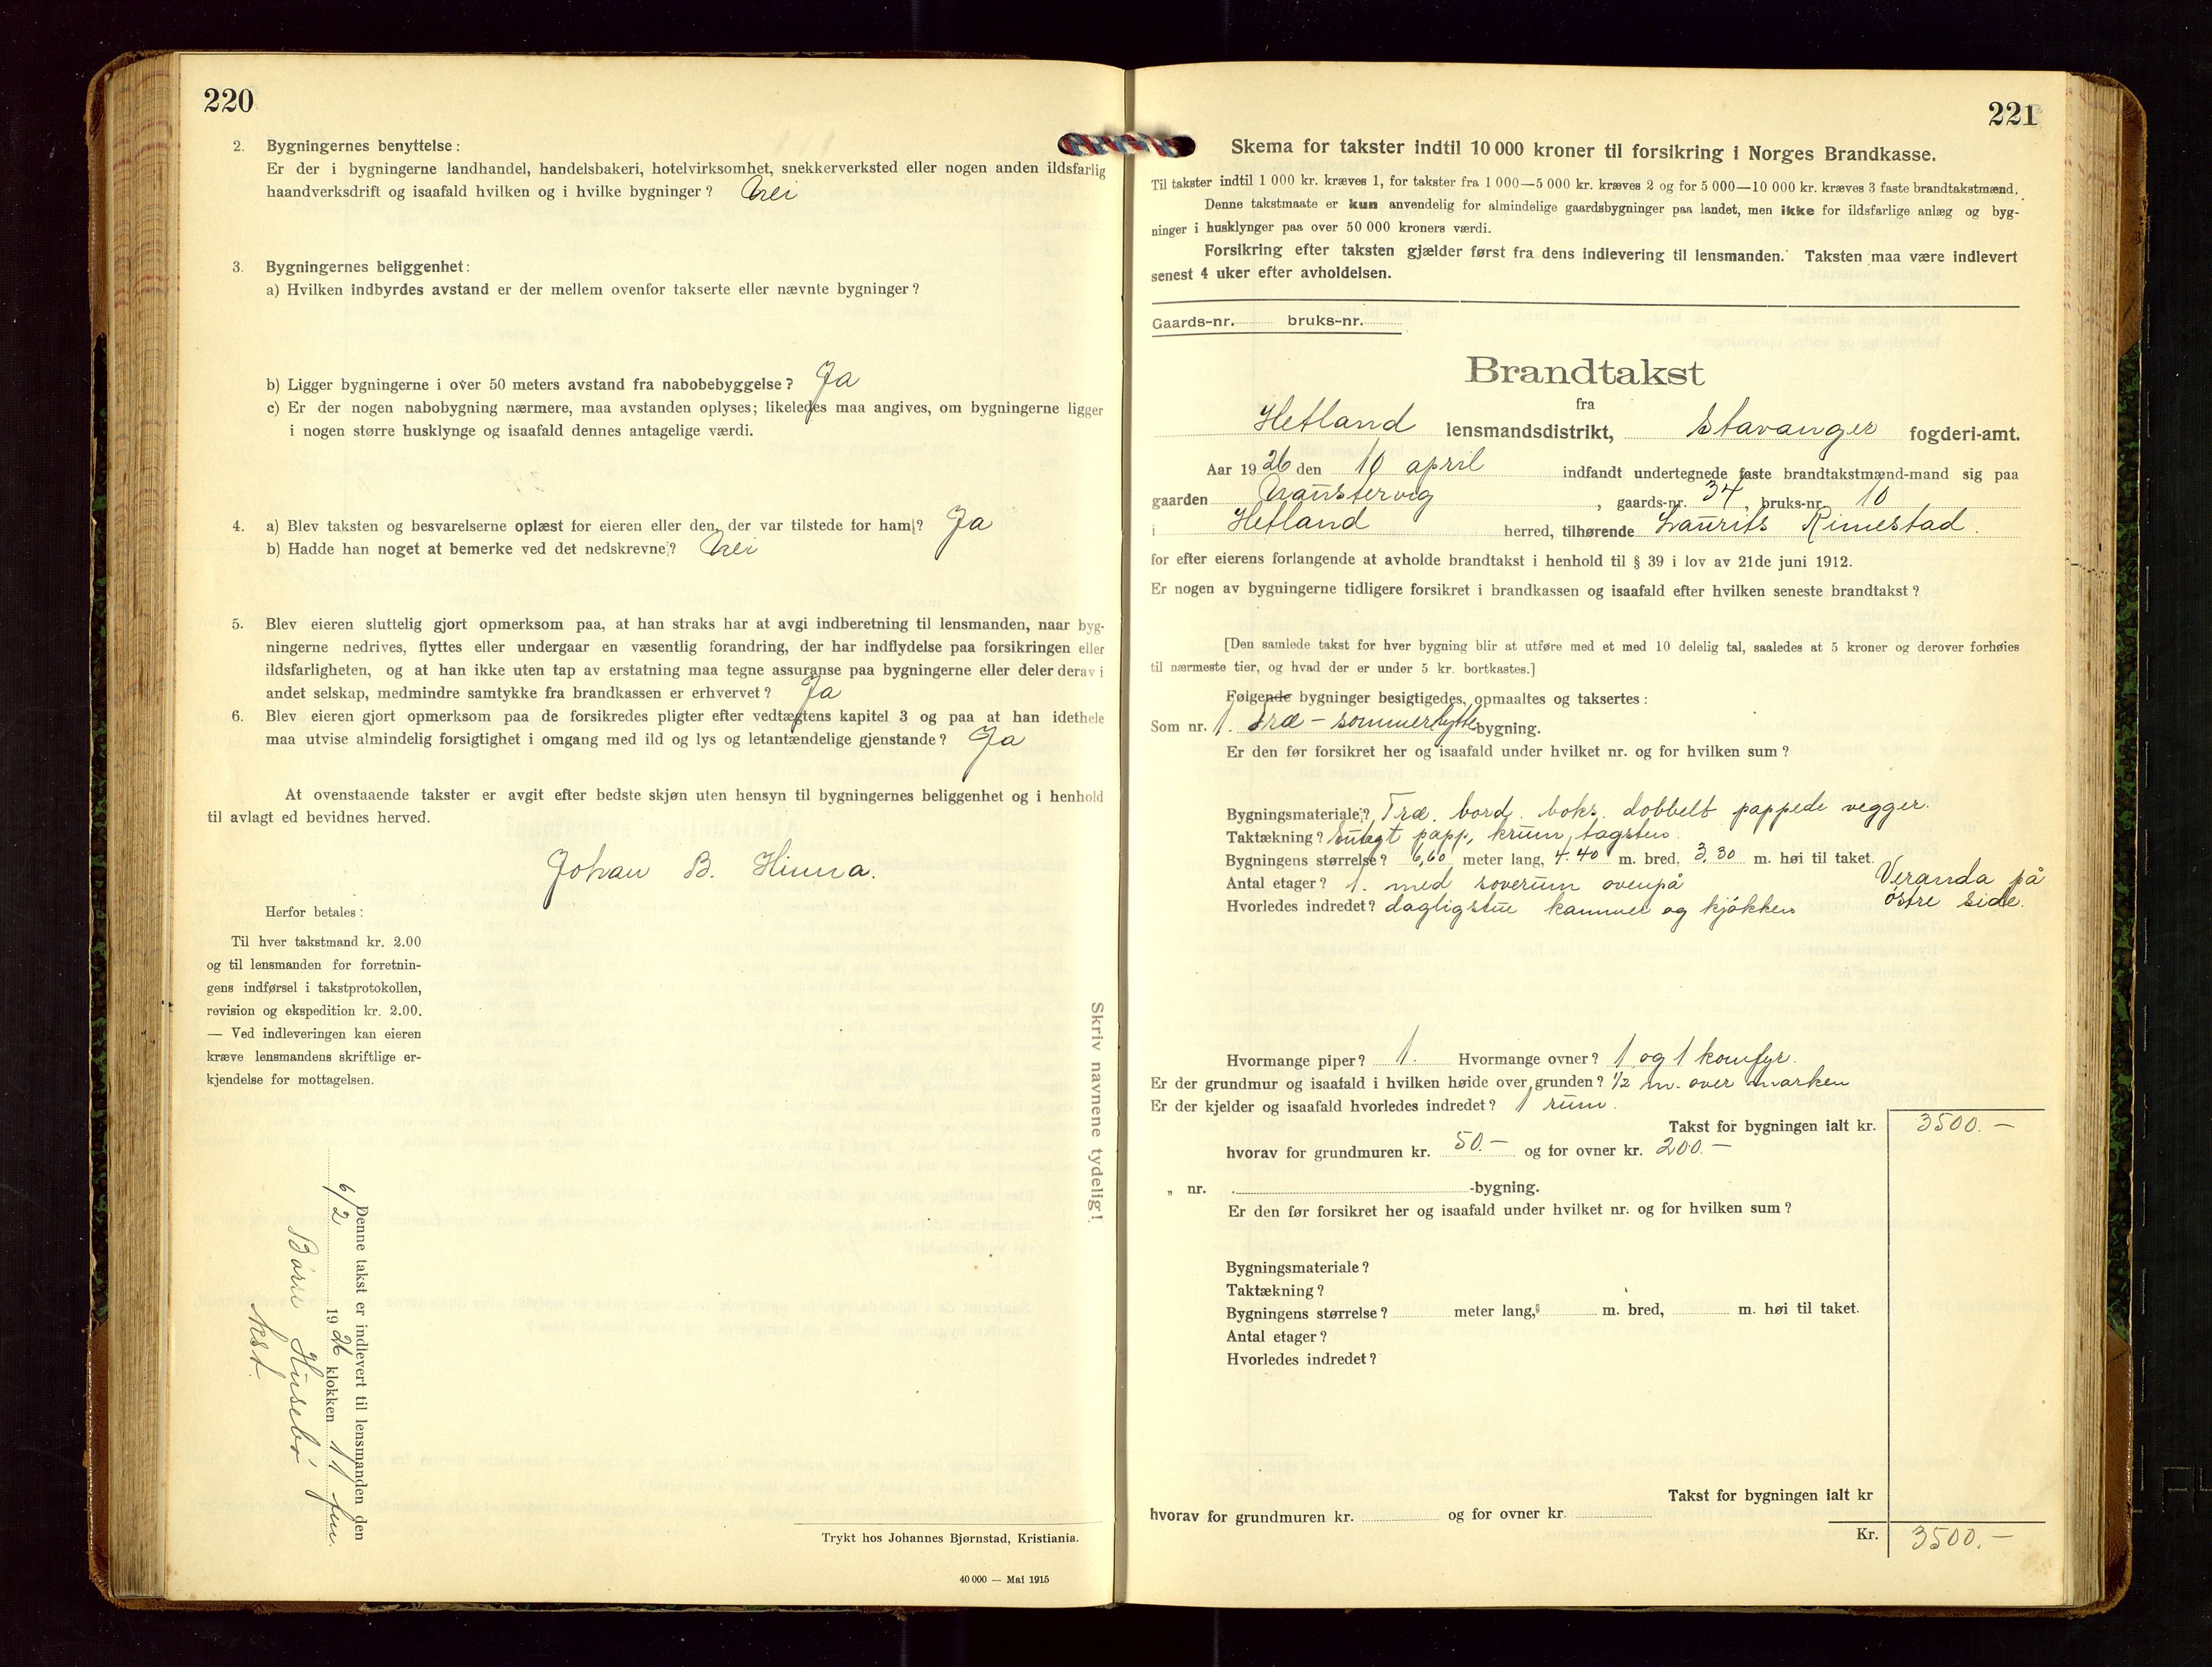 220
2. Bygningernes benyttelse:
Er der i bygningerne landhandel, handelsbakeri, hotelvirksomhet, snekkerverksted eller nogen anden ildsfarlig
haandverksdrift og isaafald hvilken og i hvilke bygninger? Nei
3. Bygningernes beliggenhet:
a) Hvilken indbyrdes avstand er der mellem ovenfor takserte eller nævnte bygninger?
b) Ligger bygningerne i over 50 meters avstand fra nabobebyggelse? Ja
c) Er der nogen nabobygning nærmere, maa avstanden oplyses; likeledes maa angives, om bygningerne ligger
i nogen større husklynge og isaafald dennes antagelige værdi.
4. a) Blev taksten og besvarelserne oplæst for eieren eller den, der var tilstede for ham? Ja
b) Hadde han noget at bemerke ved det nedskrevne? Nei
5. Blev eieren sluttelig gjort opmerksom paa, at han straks har at avgi indberetning til lensmanden, naar byg-
ningerne nedrives, flyttes eller undergaar en væsentlig forandring, der har indflydelse paa forsikringen eller
ildsfarligheten, og at han ikke uten tap av erstatning maa tegne assuranse paa bygningerne eller deler derav i
andet selskap, medmindre samtykke fra brandkassen er erhvervet? Ja
6. Blev eieren gjort opmerksom paa de forsikredes pligter efter vedtægtens kapitel 3 og paa at han idethele
maa utvise almindelig forsigtighet i omgang med ild og lys og letantændelige gjenstande? Ja
At ovenstaaende takster er avgit efter bedste skjøn uten hensyn til bygningernes beliggenhet og i henhold
til avlagt ed bevidnes herved.
Johan B. Hinna.
Herfor betales:
Til hver takstmand kr. 2.00
og til lensmanden for forretnin-
gens indførsel i takstprotokollen,
revision og ekspedition kr. 2.00.
— Ved indleveringen kan eieren
kræve lensmandens skriftlige er-
kjendelse for mottagelsen.
Skriv navnene tydelig!
Denne takst er indlevert til lensmanden den
6/2 1926 klokken 11 fm.
Børre Husebø
kst.
Trykt hos Johannes Bjørnstad, Kristiania.
40 000 — Mai 1915
221
Skema for takster indtil 10 000 kroner til forsikring i Norges Brandkasse.
Til takster indtil 1 000 kr. kræves 1, for takster fra 1 000—5 000 kr. kræves 2 og for 5 000—10 000 kr. kræves 3 faste brandtakstmænd.
Denne takstmaate er kun anvendelig for almindelige gaardsbygninger paa landet, men ikke for ildsfarlige anlæg og byg-
ninger i husklynger paa over 50 000 kroners værdi.
Forsikring efter taksten gjælder først fra dens indlevering til lensmanden. Taksten maa være indlevert
senest 4 uker efter avholdelsen.
Gaards-nr. bruks-nr.
Brandtakst
fra
Hetland lensmandsdistrikt, Stavanger fogderi-amt.
Aar 1926 den 10 april indfandt undertegnede faste brandtakstmænd-mand sig paa
gaarden , gaards-nr. 34, bruks-nr. 10
i Hetland herred, tilhørende Laurits Rimestad.
for efter eierens forlangende at avholde brandtakst i henhold til § 39 i lov av 21de juni 1912.
Er nogen av bygningerne tidligere forsikret i brandkassen og isaafald efter hvilken seneste brandtakst?
[Den samlede takst for hver bygning blir at utføre med et med 10 delelig tal, saaledes at 5 kroner og derover forhøies
til nærmeste tier, og hvad der er under 5 kr. bortkastes.]
Følgende bygninger besigtigedes, opmaaltes og taksertes:
Som nr. 1. Træ - sommerhytte bygning.
Er den før forsikret her og isaafald under hvilket nr. og for hvilken sum?
Bygningsmateriale? Træ. bord. boks. dobbelt pappede vegger.
Taktækning? sutagt papp, krum, tagsten.
Bygningens størrelse? 6,60 meter lang, 4.40 m. bred, 3.30 m. høi til taket.
Antal etager? 1. med soverum ovenpå Veranda på
Hvorledes indredet? dagligstue kammer og kjøkken østre side.
Hvormange piper? 1. Hvormange ovner? 1 og 1 komfyr.
Er der grundmur og isaafald i hvilken høide over grunden? 1/2 m. over marken
Er der kjelder og isaafald hvorledes indredet? 1 rum.
Takst for bygningen ialt kr. 3500.—
hvorav for grundmuren kr. 50.— og for ovner kr. 200.—
„ nr. -bygning.
Er den før forsikret her og isaafald under hvilket nr. og for hvilken sum?
Bygningsmateriale?
Taktækning?
Bygningens størrelse? meter lang, m. bred, m. høi til taket.
Antal etager?
Hvorledes indredet?
Takst for bygningen ialt kr
hvorav for grundmuren kr. og for ovner kr.
Kr. 3500.—